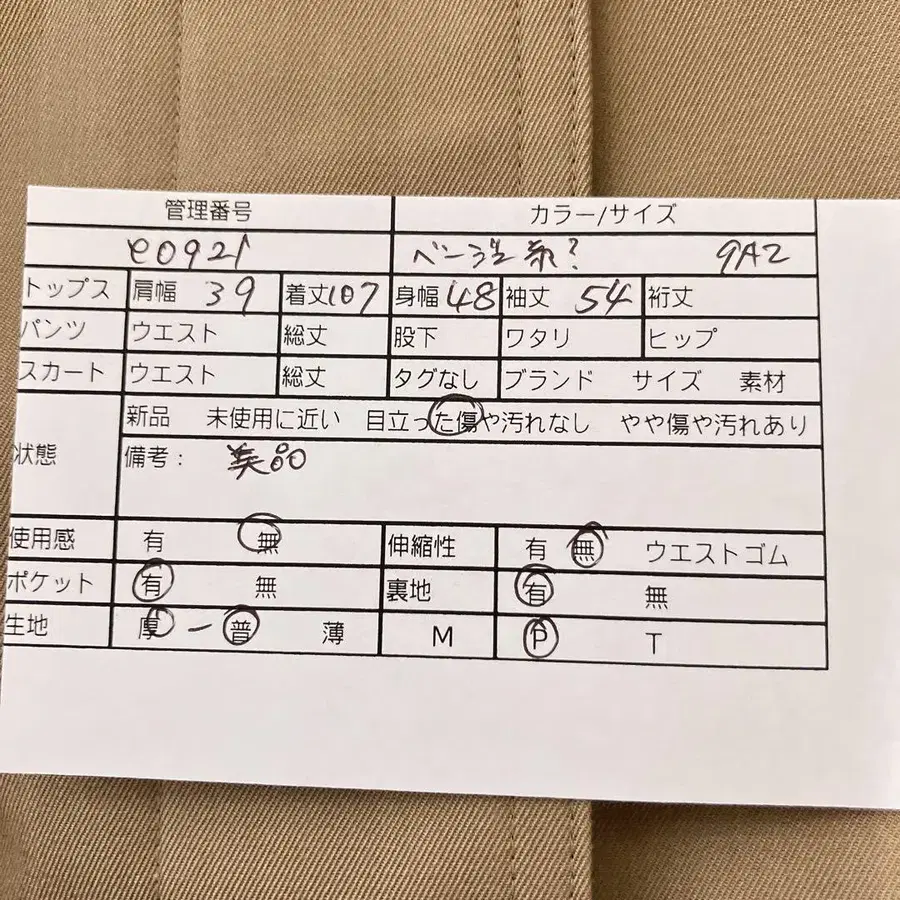 管理番号 カラー/サイズ
e0921 ベージュ系? 9A2
トップス 肩幅 39 着丈107 身幅48 袖丈 54 裄丈
パンツ ウエスト 総丈 股下 ワタリ ヒップ
スカート ウエスト 総丈 タグなし ブランド サイズ 素材
状態 新品 未使用に近い 目立った傷や汚れなし やや傷や汚れあり
備考: 美品
使用感 有 無 伸縮性 有 無 ウエストゴム
ポケット 有 無 裏地 有 無
生地 厚 ー 普 薄 M P T